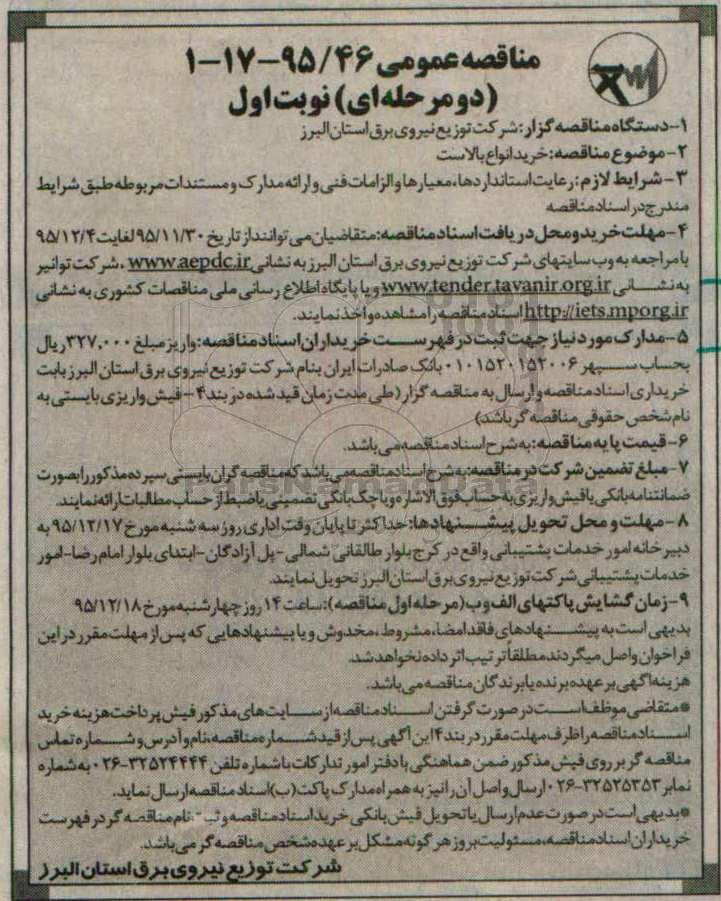 مناقصه عمومی ۹۵/۴۶-۱۷-۱
(دو مرحله‌ای) نوبت اول
۱-دستگاه مناقصه گزار: شرکت توزیع نیروی برق استان البرز
۲-موضوع مناقصه: خرید انواع بالاست
۳-شرایط لازم: رعایت استانداردها، معیارها و الزامات فنی و ارائه مدارک و مستندات مربوطه طبق شرایط
مندرج در اسناد مناقصه
۴-مهلت خرید و محل دریافت اسناد مناقصه: متقاضیان می توانند از تاریخ ۹۵/۱۱/۳۰ لغایت ۹۵/۱۲/۴
با مراجعه به وب سایتهای شرکت توزیع نیروی برق استان البرز به نشانی www.aepdc.ir، شرکت توانیر
به نشانی www.tender.tavanir.org.ir و یا پایگاه اطلاع رسانی ملی مناقصات کشوری به نشانی
http://iets.mporg.ir اسناد مناقصه را مشاهده و اخذ نمایند.
۵-مدارک مورد نیاز جهت ثبت در فهرست خریداران اسناد مناقصه: واریز مبلغ ۳۲۷,۰۰۰ ریال
بحساب سپهر ۰۱۰۱۵۲۰۱۵۲۰۰۶ بانک صادرات ایران بنام شرکت توزیع نیروی برق استان البرز بابت
خریداری اسناد مناقصه و ارسال به مناقصه گزار (طی مدت زمان قید شده در بند ۴-فیش واریزی بایستی به
نام شخص حقوقی مناقصه گر باشد)
۶-قیمت پایه مناقصه: به شرح اسناد مناقصه می باشد.
۷-مبلغ تضمین شرکت در مناقصه: به شرح اسناد مناقصه می باشد که مناقصه گران بایستی سپرده مذکور را بصورت
ضمانتنامه بانکی یا فیش واریزی به حساب فوق الاشاره و یا چک بانکی تضمینی یا ضبط از حساب مطالبات ارائه نمایند.
۸-مهلت و محل تحویل پیشنهادها: حداکثر تا پایان وقت اداری روز سه شنبه مورخ ۹۵/۱۲/۱۷ به
دبیرخانه امور خدمات پشتیبانی واقع در کرج بلوار طالقانی شمالی-پل آزادگان-ابتدای بلوار امام رضا-امور
خدمات پشتیبانی شرکت توزیع نیروی برق استان البرز تحویل نمایند.
۹-زمان گشایش پاکتهای الف و ب (مرحله اول مناقصه): ساعت ۱۴ روز چهارشنبه مورخ ۹۵/۱۲/۱۸
بدیهی است به پیشنهادهای فاقد امضا، مشروط، مخدوش و یا پیشنهادهایی که پس از مهلت مقرر در این
فراخوان واصل میگردند مطلقاً ترتیب اثر داده نخواهد شد.
هزینه اگهی بر عهده برنده یا برندگان مناقصه می باشد.
*متقاضی موظف است در صورت گرفتن اسناد مناقصه از سایت های مذکور فیش پرداخت هزینه خرید
اسناد مناقصه را ظرف مهلت مقرر در بند ۴ این آگهی پس از قید شماره مناقصه، نام و آدرس و شماره تماس
مناقصه گر بر روی فیش مذکور ضمن هماهنگی با دفتر امور تدارکات با شماره تلفن ۳۲۵۲۴۴۴۴-۰۲۶ به شماره
نمابر ۳۲۵۲۵۳۵۳-۰۲۶ ارسال و اصل آن را نیز به همراه مدارک پاکت (ب) اسناد مناقصه ارسال نماید.
*بدیهی است در صورت عدم ارسال یا تحویل فیش بانکی خرید اسناد مناقصه و ثبت نام مناقصه گر در فهرست
خریداران اسناد مناقصه، مسئولیت بروز هر گونه مشکل بر عهده شخص مناقصه گر می باشد.
شرکت توزیع نیروی برق استان البرز